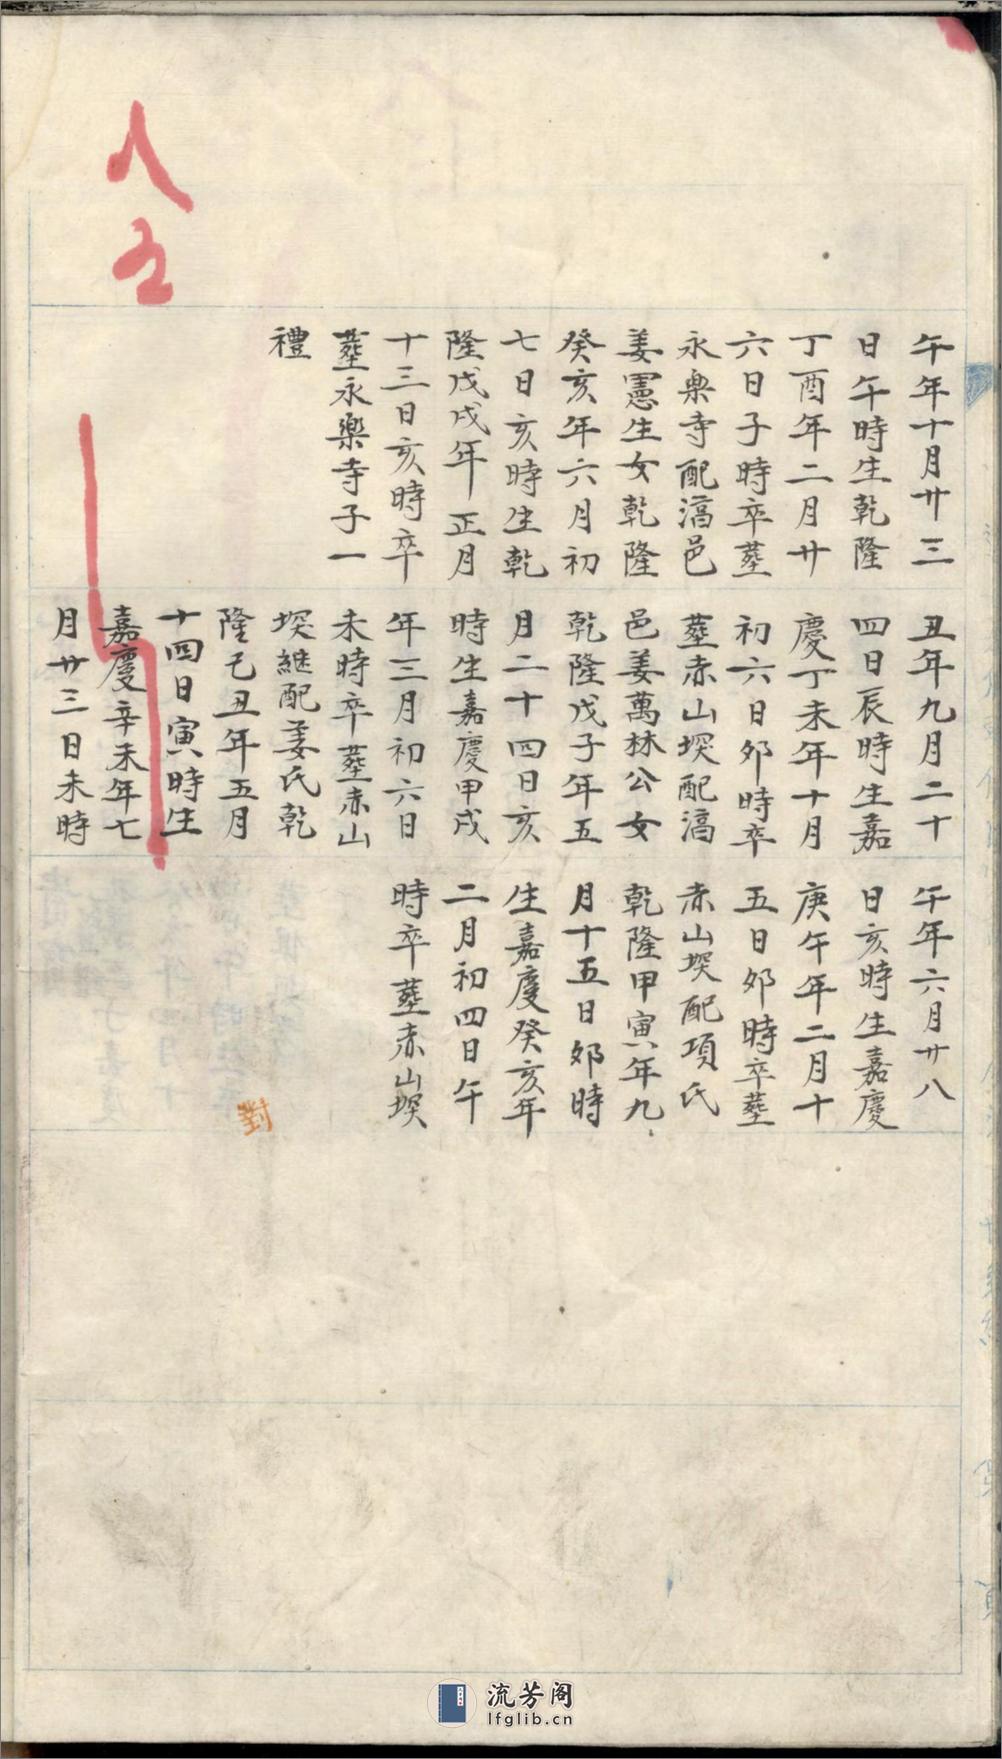 午年十月廿三
日午時生乾隆
丁酉年二月廿
六日子時卒塟
永樂寺配滈邑
姜憲生女乾隆
癸亥年六月初
七日亥時生乾
隆戊戌年正月
十三日亥時卒
塟永樂寺子一
禮
丑年九月二十
四日辰時生嘉
慶丁未年十月
初六日夘時卒
塟赤山堗配滈
邑姜萬林公女
乾隆戊子年五
月二十四日亥
時生嘉慶甲戌
年三月初六日
未時卒塟赤山
堗継配姜氏乾
隆己丑年五月
十四日寅時生
嘉慶辛未年七
月廿三日未時
午年六月廿八
日亥時生嘉慶
庚午年二月十
五日夘時卒塟
赤山堗配項氏
乾隆甲寅年九
月十五日夘時
生嘉慶癸亥年
二月初四日午
時卒塟赤山堗
對
流芳阁
lfglib.cn